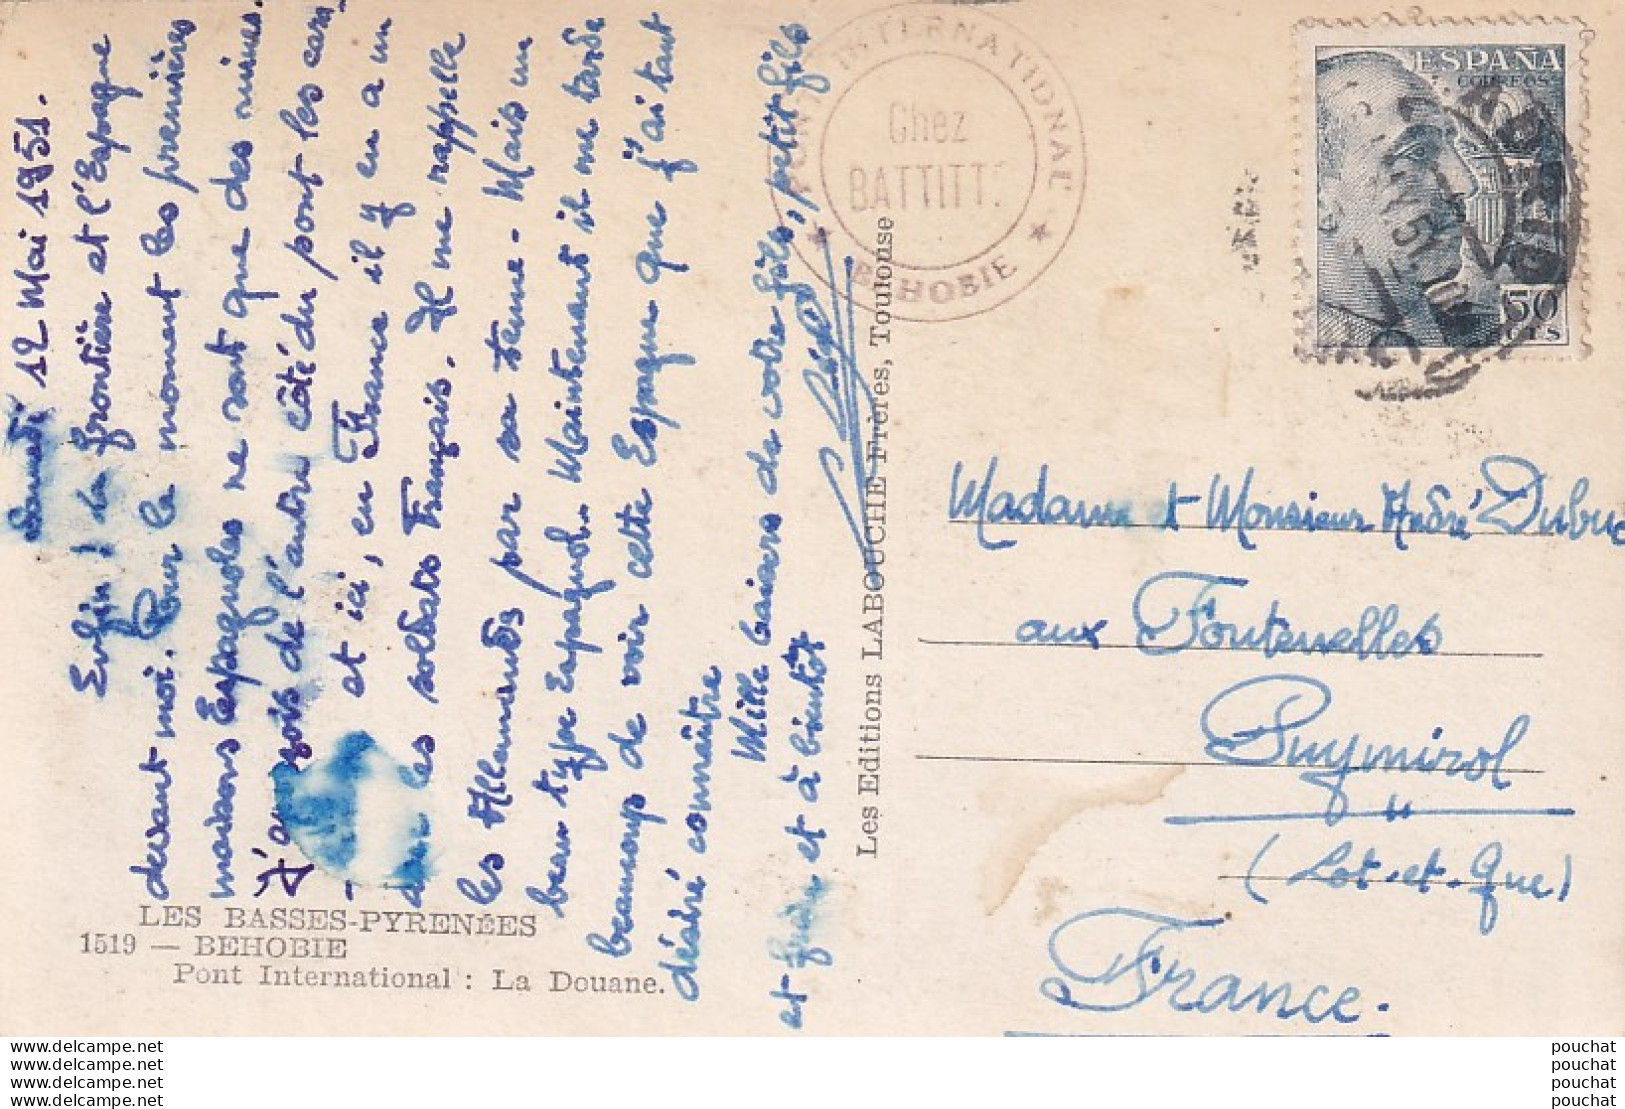 samedi 12 Mai 1951.
Enfin ! La frontière et l'Espagne
devant moi. Pour le moment les premières
maisons Espagnoles ne sont que des ruines.
J'aperçois de l'autre côté du pont les cara-
et ici, en France il y en a un
les soldats Français. Il me rappelle
les Allemands par sa tenue - Mais un
beau type Espagnol. Maintenant il me tarde
beaucoup de voir cette Espagne que j'ai tant
désiré connaître
Mille baisers de votre fils, petit fils
et frère et à bientôt
LES BASSES-PYRENÉES
1519 — BEHOBIE
Pont International : La Douane.
Les Editions LABOUCHE Frères, Toulouse
PONT INTERNATIONAL
Chez
BATTITT
★ BEHOBIE ★
ESPAÑA
CORREOS
50
CTS
Madame et Monsieur André Dubuc
aux Fontenelles
Puymirol
(Lot-et-Gne)
France.
www.delcampe.net
www.delcampe.net
www.delcampe.net
www.delcampe.net
pouchat
pouchat
pouchat
pouchat